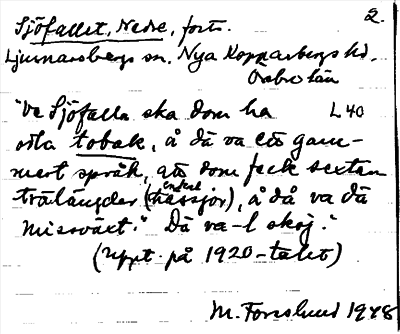 2.
Sjöfallet, Nedre, forts.
Ljusnarsbergs sn. Nya Kopparbergs hd.
Örebro län
"Ve Sjöfalla ska dom ha L 40
odla tobak, å dä va ett gam-
malt språk, att dom feck sextan
trälängder (enkel hässjor), å då va dä
missväxt." "Dä va-l skoj."
(Uppt. på 1920-talet)
M. Forslund 1948